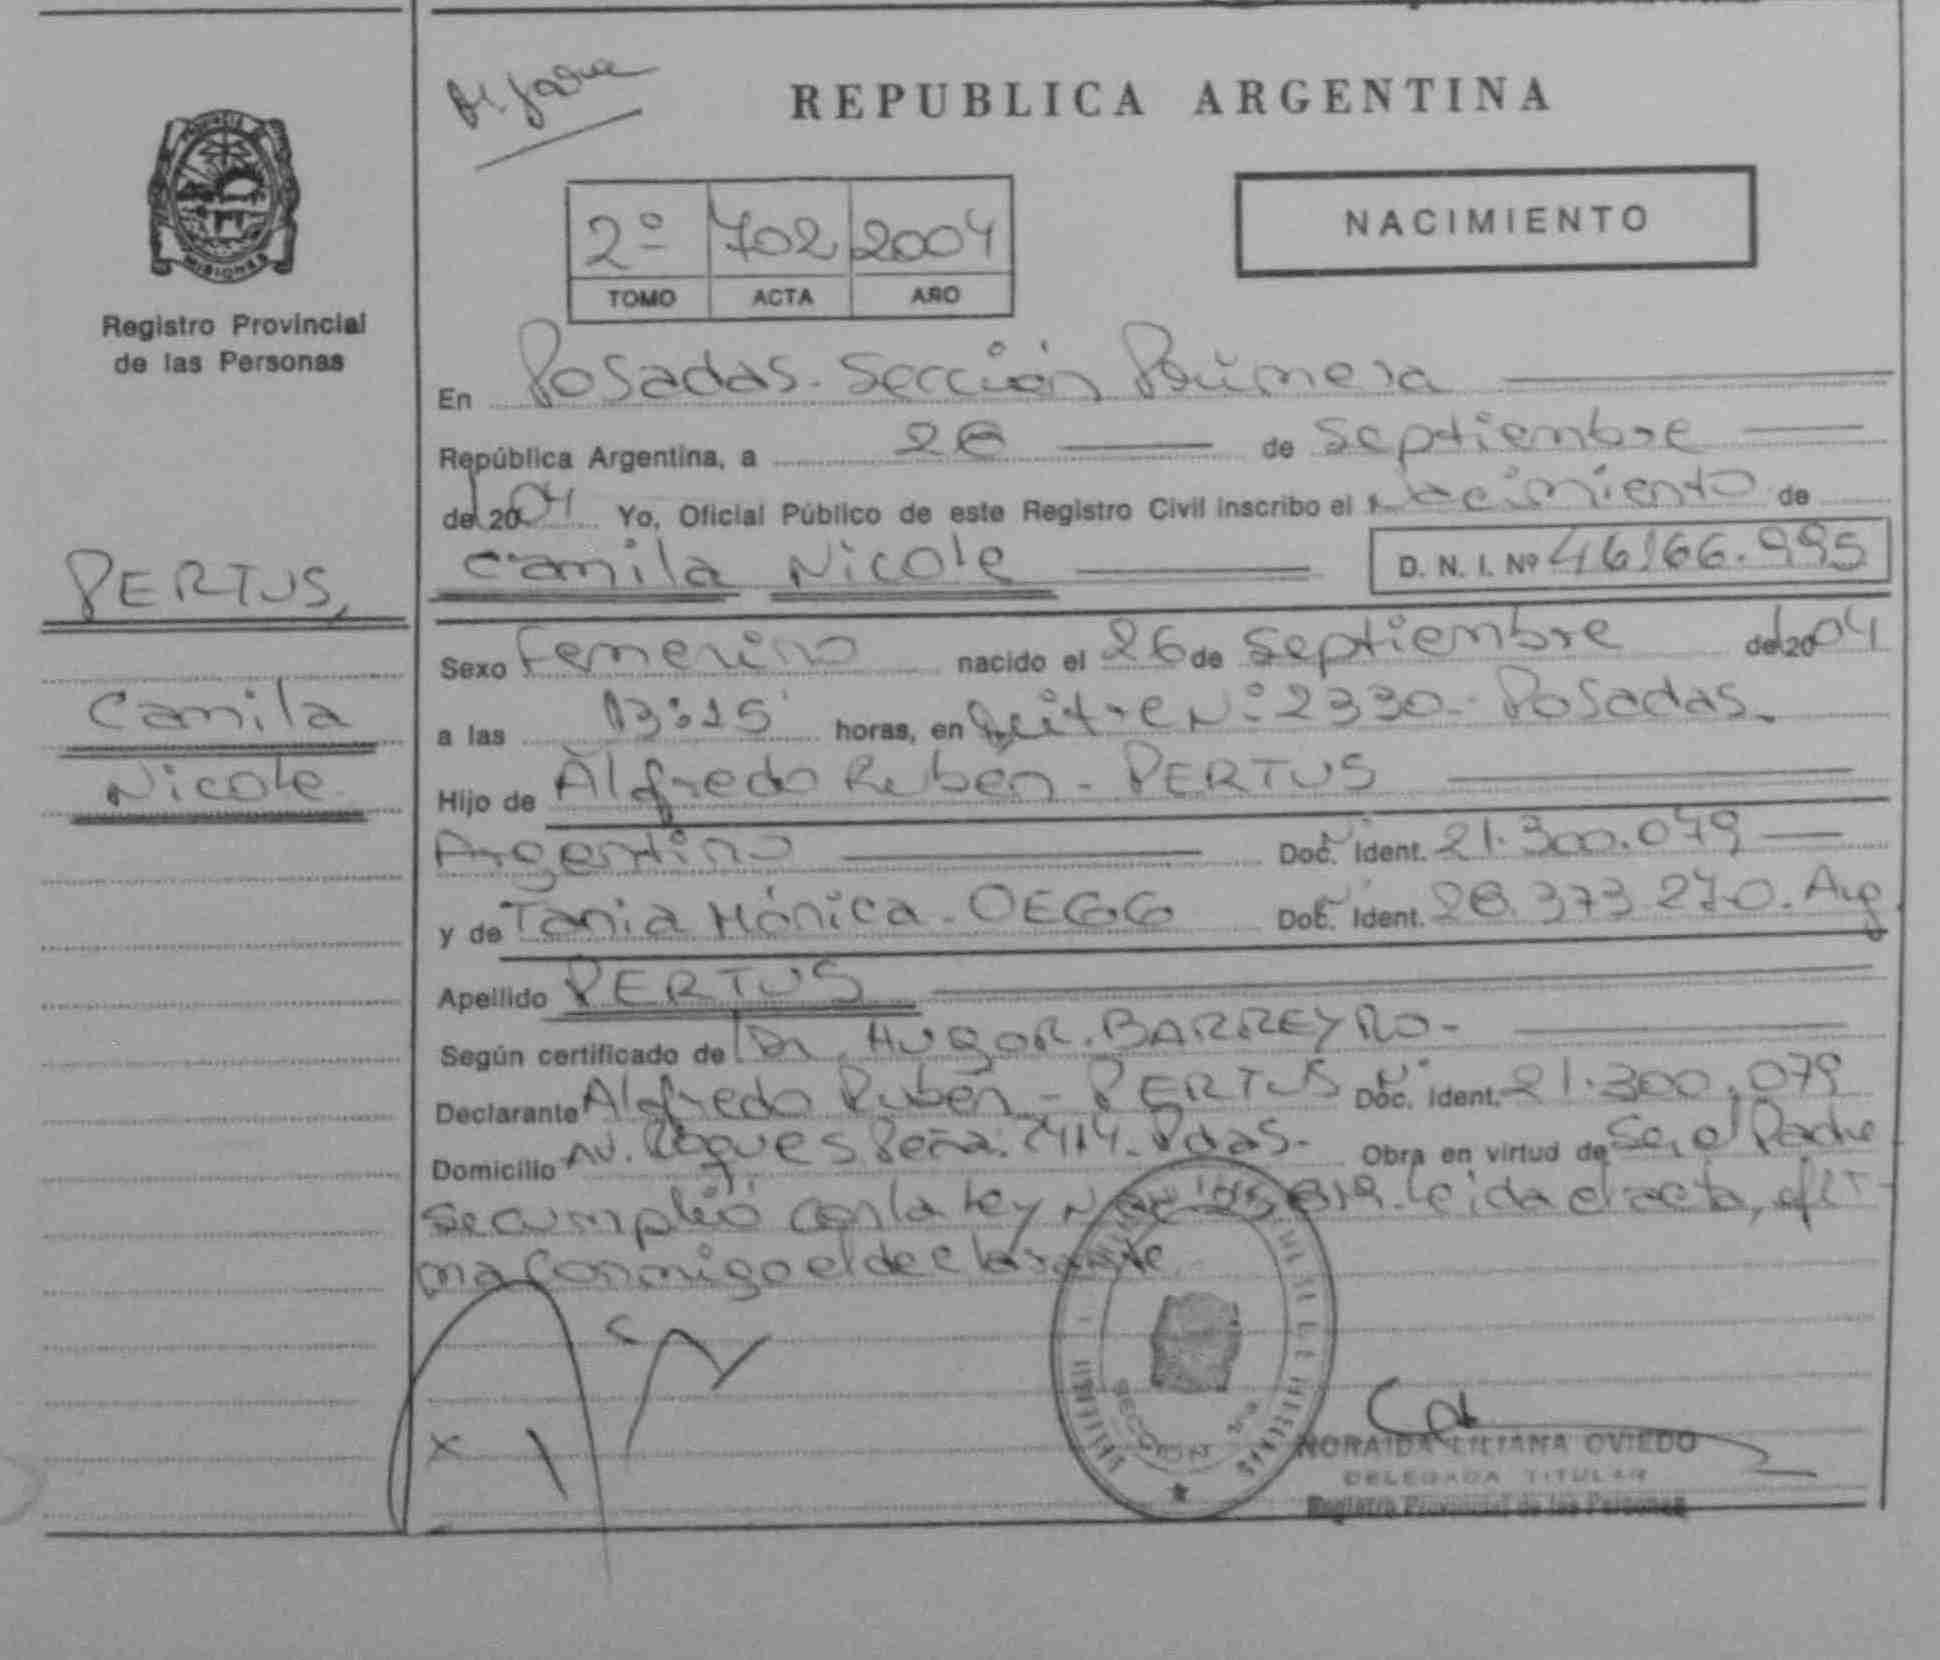 REPUBLICA ARGENTINA
NACIMIENTO
2º 702 2004
TOMO ACTA AÑO
PROVINCIA DE
MISIONES
Registro Provincial
de las Personas
PERTUS,
Camila
Nicole
En Posadas. Sección Primera
República Argentina, a 28 de Septiembre
del 2004 Yo, Oficial Público de este Registro Civil inscribo el Nacimiento de
Camila Nicole D. N. I. Nº 46.166.995
Sexo Femenino nacido el 26 de Septiembre del 2004
a las 13:15 horas, en Nº 2330 - Posadas.
Hijo de Alfredo Rubén - PERTUS
Argentino Doc. Ident. 21.300.079
y de Tania Mónica - OEGG Doc. Ident. 28.373.270. Arg.
Apellido PERTUS
Según certificado de Dr. Hugo R. BARREYRO -
Declarante Alfredo Rubén - PERTUS Doc. Ident. 21.300.079
Domicilio Av. Roque S Peña. 7414. Pdas. Obra en virtud de Ser el Padre
Se cumplió con la Ley Nac. Leida el acta,
conmigo el declarante
SECCION 1ra.
NORAIDA LILIANA OVIEDO
DELEGADA TITULAR
Registro Provincial de las Personas